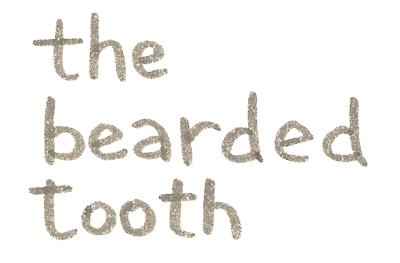 the
bearded
tooth